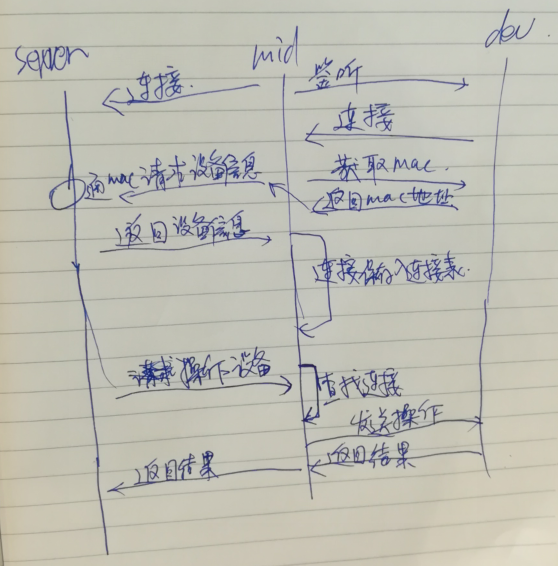 server mid dev
连接 监听
连接
获取mac
通mac请求设备信息 返回mac地址
返回设备信息
连接保存入连接表
请求操作设备 查找连接
发送操作
返回结果 返回结果